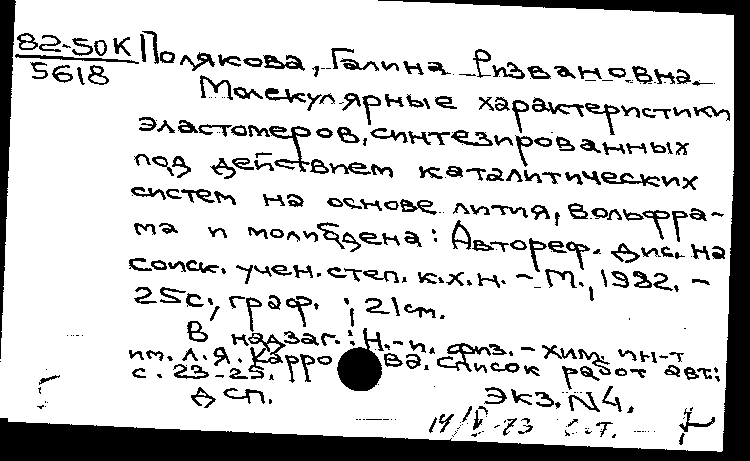 82-50К Полякова, Галина Ризвановна.
5618
Молекулярные характеристики
эластомеров, синтезированных
под действием каталитических
систем на основе лития, вольфра-
ма и молибдена: Автореф. дис. на
соиск. учен. степ. к.х.н. - М., 1982. -
25с., граф. ; 21 см.
В надзаг.: Н.-и. физ. - хим. ин-т
им. Л. Я. Карпо ва. Список работ авт.:
с. 23-25.
ДСП. Экз. N4.
С.Т.